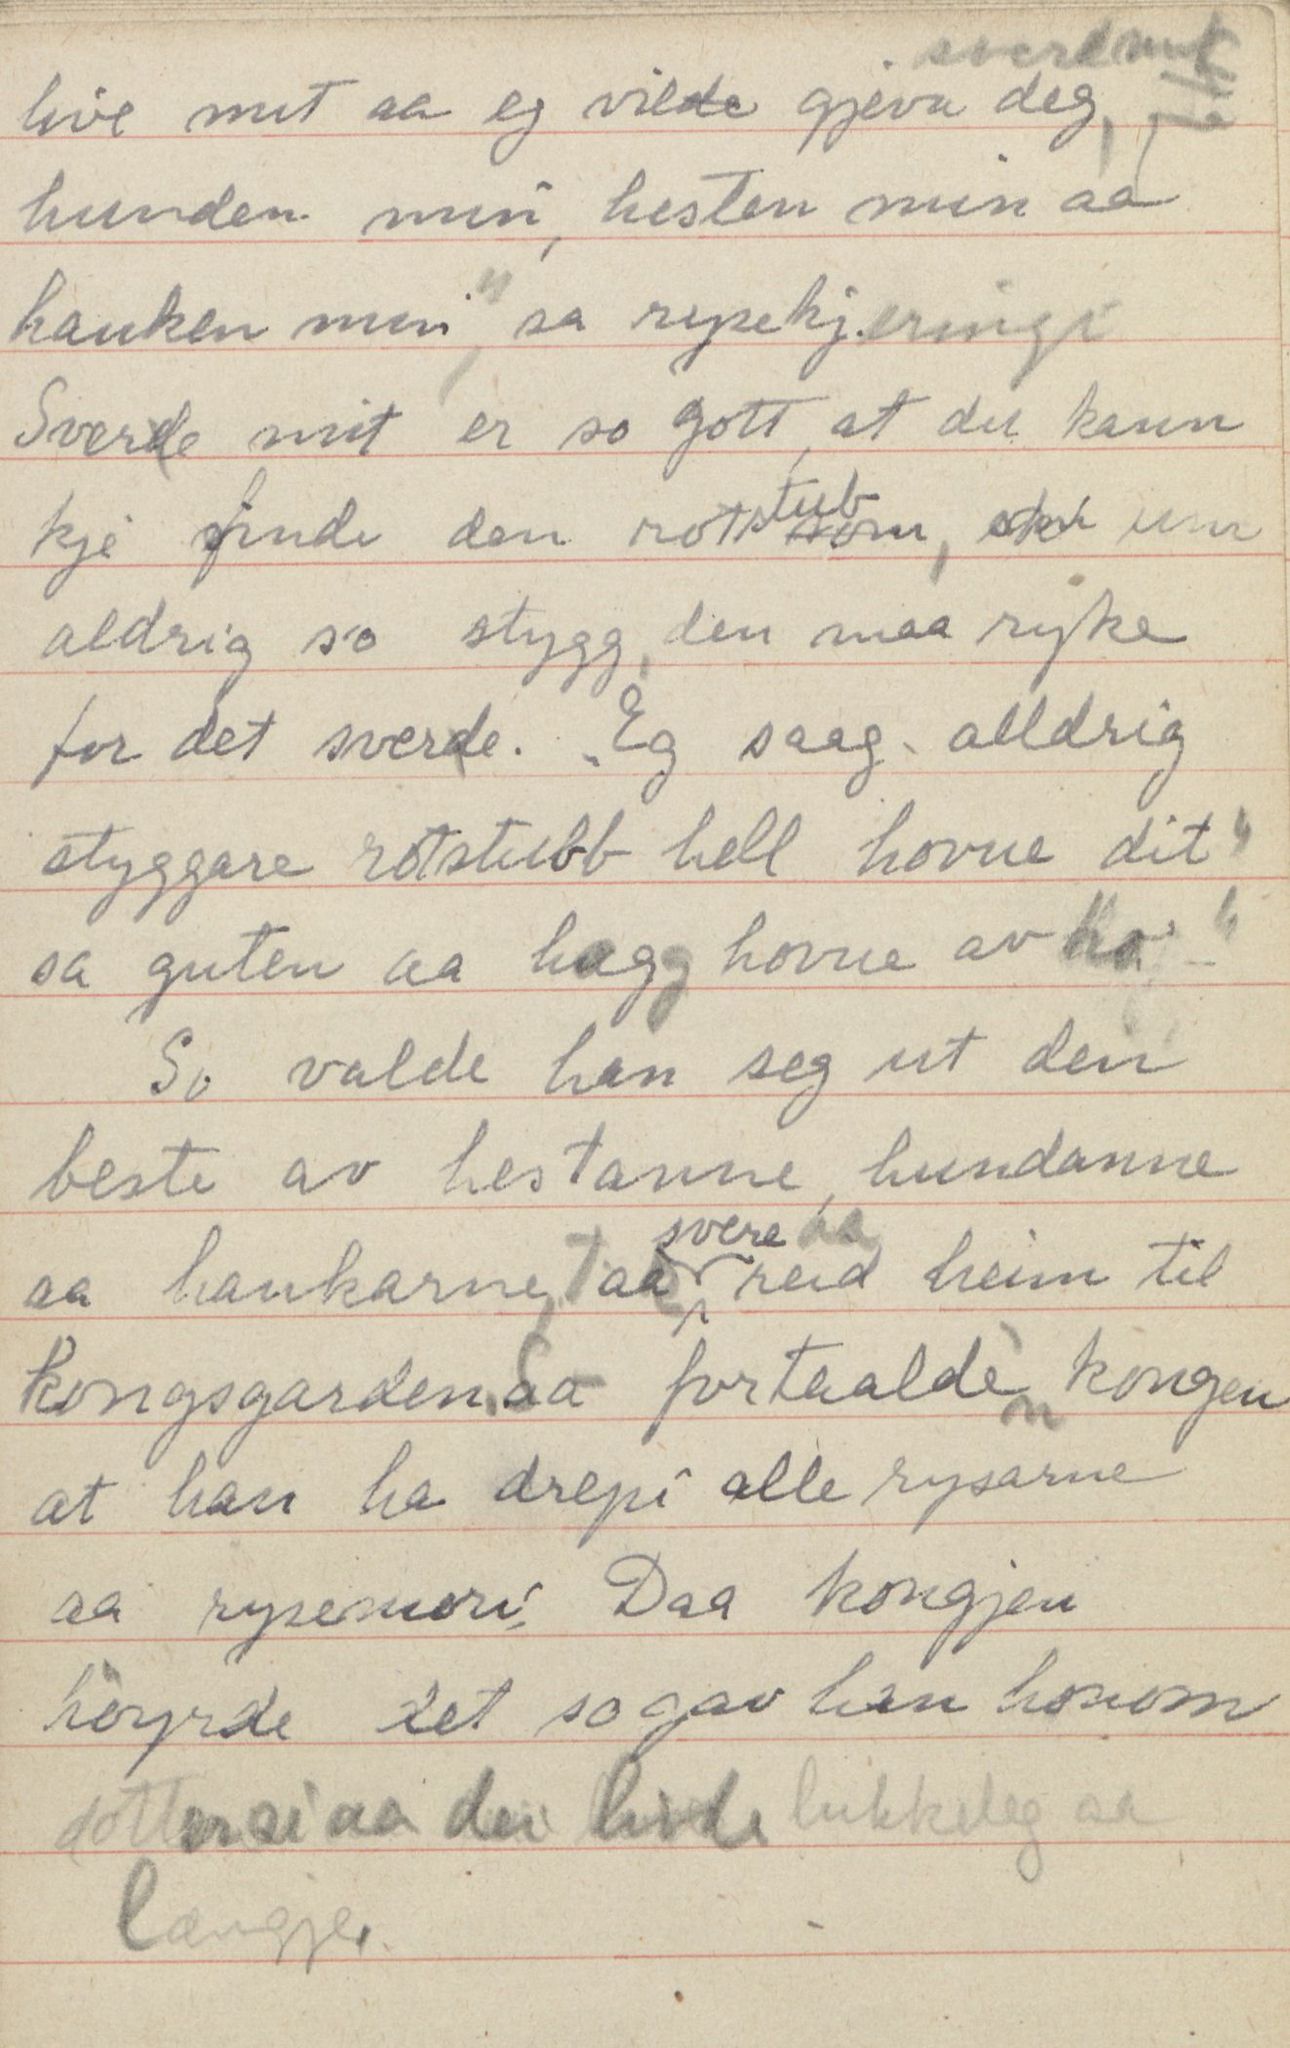 sverd mit
live mit aa eg vilde gjeva deg,
hunden min, hesten min aa
hauken min", sa rysekjeringi
Sverde mit er so gott, at du kann
kje finde den rotstub, um
aldrig so stygg, den maa ryke
for det sverde. "Eg saag alldrig
styggare rotstubb hell hovue dit"
sa guten aa hagg hovue av ho."
So valde han seg ut den
beste av hestanne, hundanne
svere aa
aa haukarne, reid heim til
kongsgarden. Saa fortaalde kongen
at han ha drepi alle rysarne
aa rysemori. Daa kongjen
höyrde det so gav han honom
dotter si aa dei livde lukkeleg aa
længje.